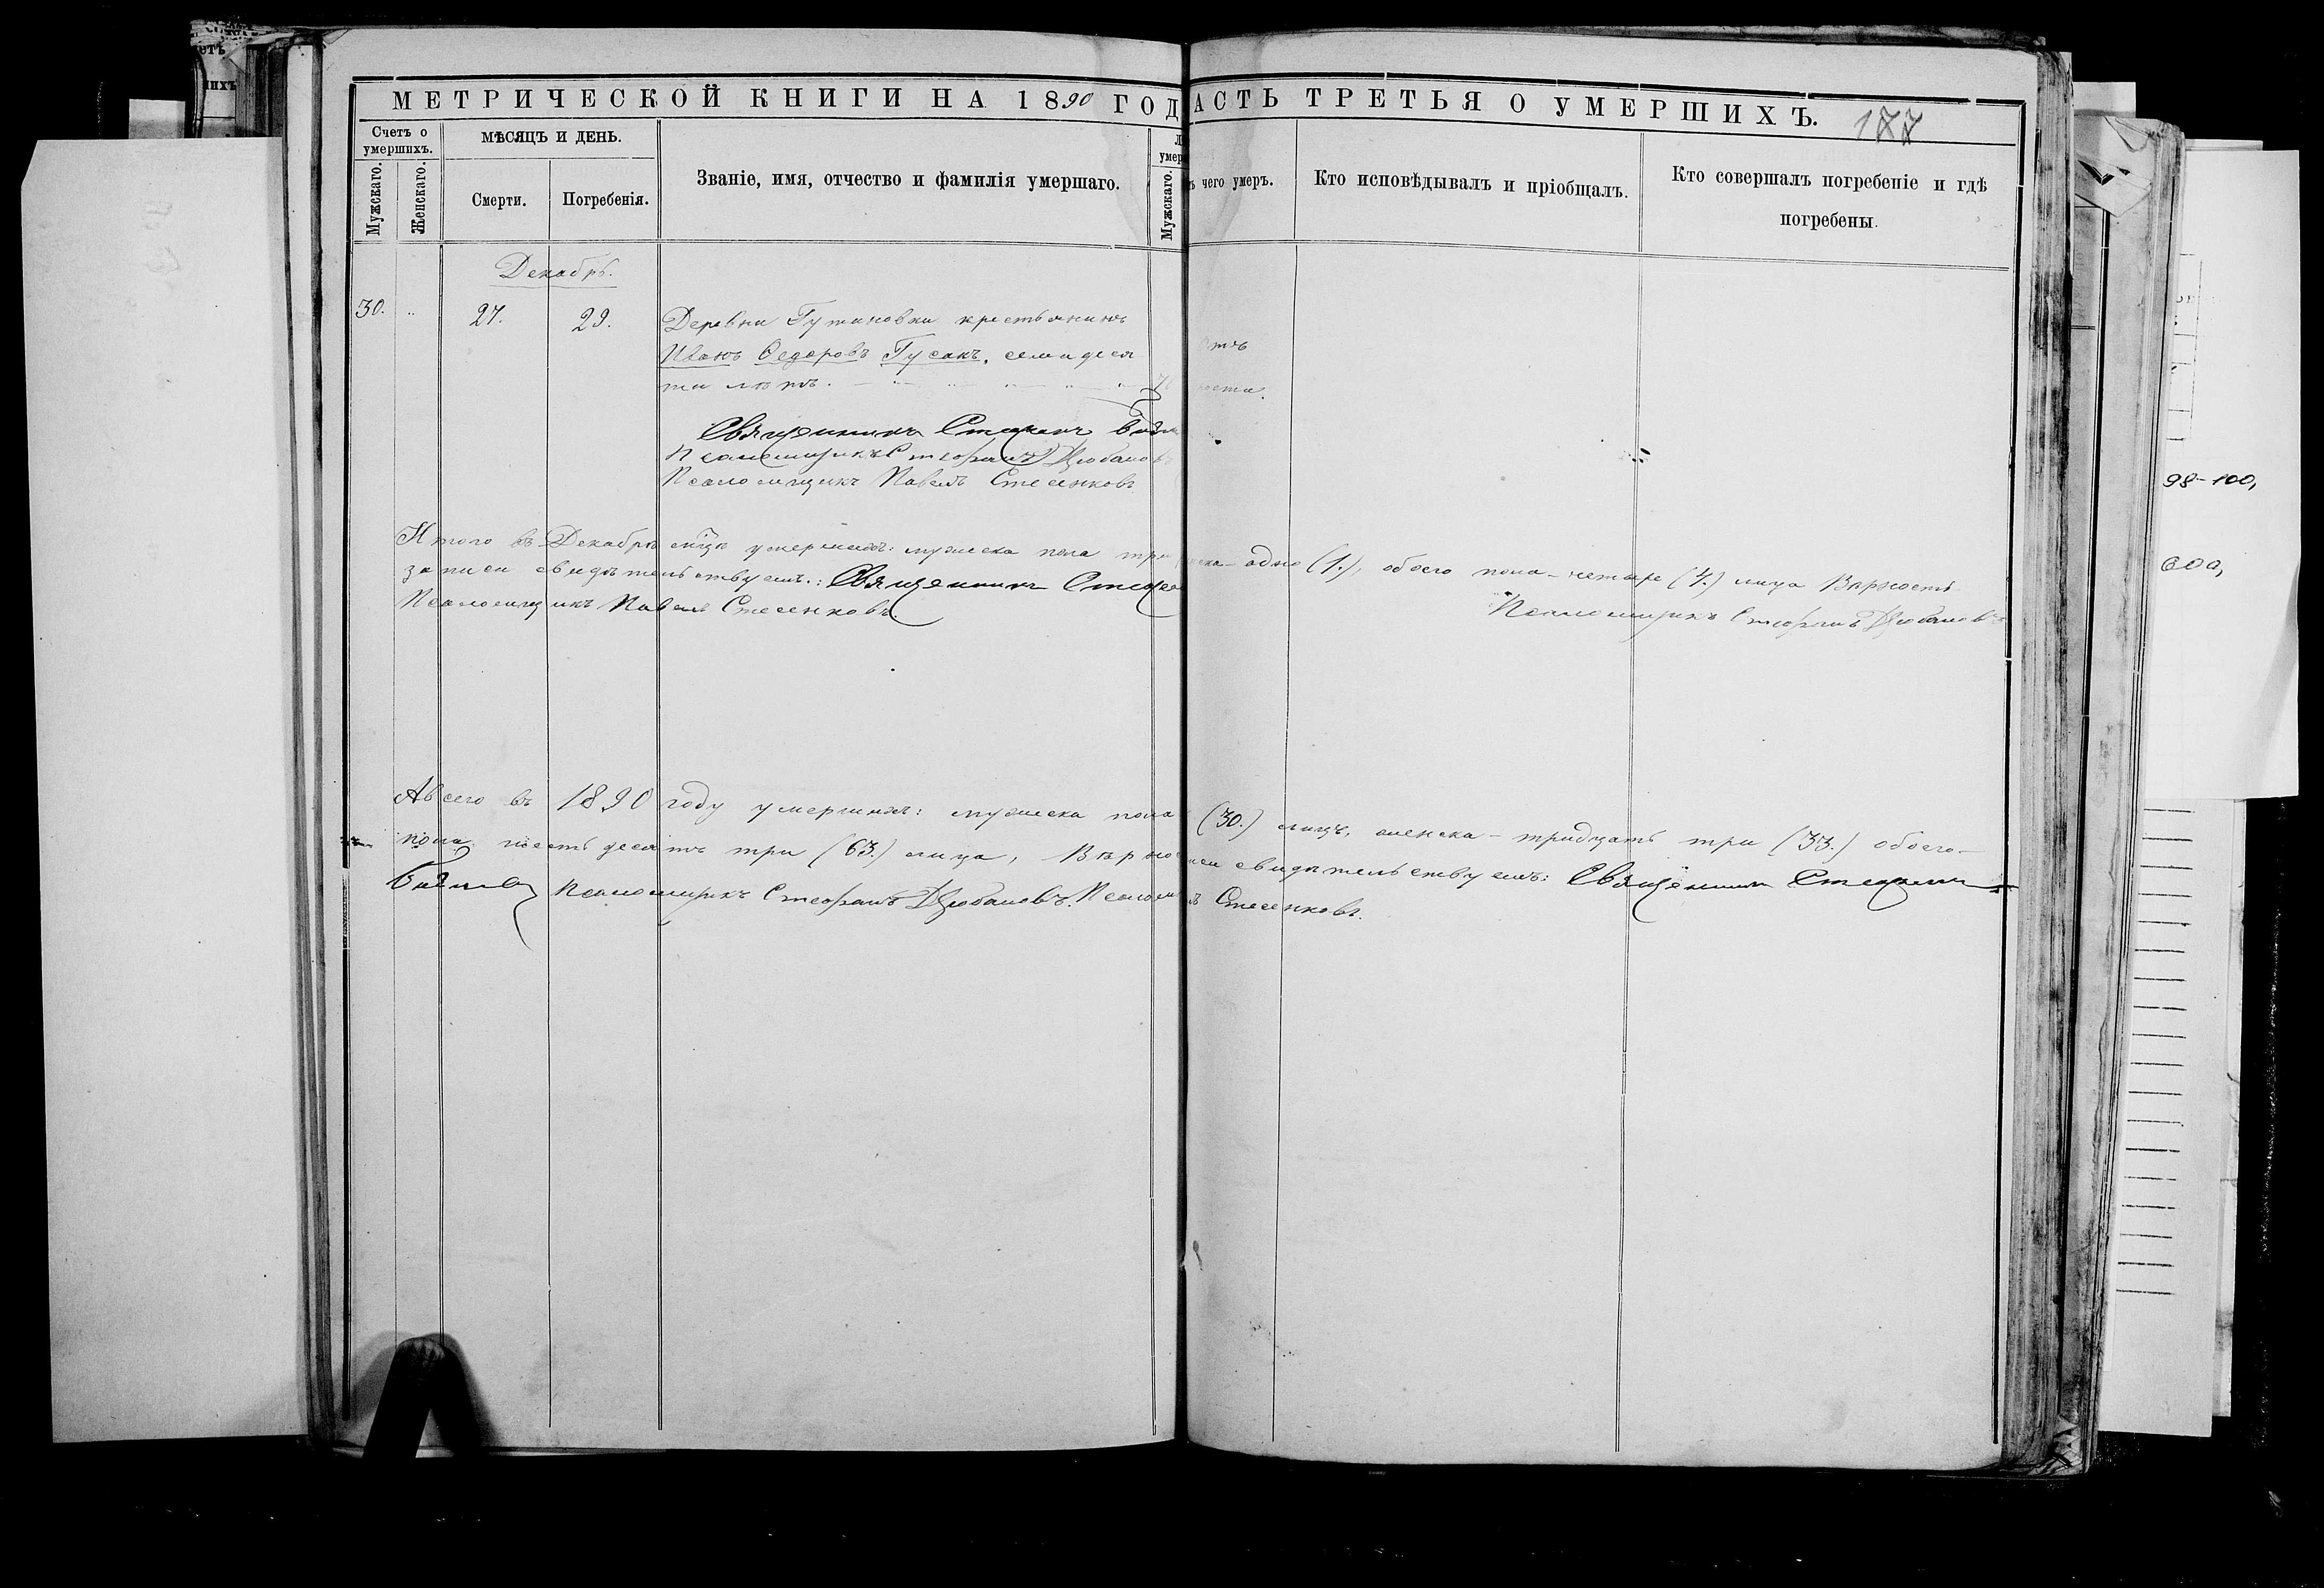 МЕТРИЧЕСКОЙ КНИГИ НА 1890 ГОД
АСТЬ ТРЕТЬЯ О УМЕРШИХЪ. 177
Счетъ о умершихъ.
Мужскаго.
Женскаго.
МѢСЯЦЪ И ДЕНЬ.
Смерти.
Погребенія.
Званіе, имя, отчество и фамилія умершаго.
умер
Мужскаго.
ъ чего умеръ.
Кто исповѣдывалъ и пріобщалъ.
Кто совершалъ погребеніе и гдѣ
погребены.
Декабрь.
30. " 27. 29. Деревни Гутановки крестьянинъ
Иванъ Ѳедоровъ Гусакъ, семидеся
ти лѣтъ.
Священникъ Стефанъ
Псаломщикъ Стефанъ Дзюбановъ
Псаломщикъ Павелъ Стесенковъ
Итого въ Декабрѣ мцѣ умершихъ: мужеска пола три
ска – одно (1.), обоего пола – четыре (4.) лица Вѣрность
записи свидѣтельствуемъ: Священникъ
Псаломщикъ Павелъ Стесенковъ.
Псаломщикъ Стефанъ Дзюбановъ
А всего въ 1890 году умершихъ: мужеска пола (30.) лицъ, женска – тридцать три (33.) обоего
пола шестьдесятъ три (63.) лица, Вѣрно свидѣтельствуемъ: Священникъ Стефанъ
Псаломщикъ Стефанъ Дзюбановъ. Стесенковъ.
98-100,